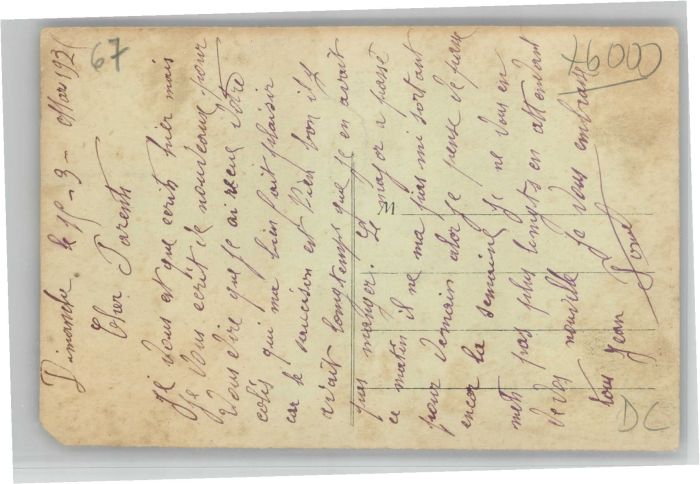 Dimanche le 15-3- Mars 1921
67
Cher Parents
Je vous est que ecrit hier mais
Je vous ecrit de nouveaux pour
vous dire que J'ai recue votre
colis qui ma bien fait plaisir
car le saucisson est bien bon il y
avait longtemps que Je en avait
pas manger. Le major a passé
ce matin il ne ma pas mi sortant
pour demain alor Je pense de
encor la semaine Je ne vous en
met pas plus longts en attendant
de vos nouvelle Je vous embrasse
tous Jean
M
DC